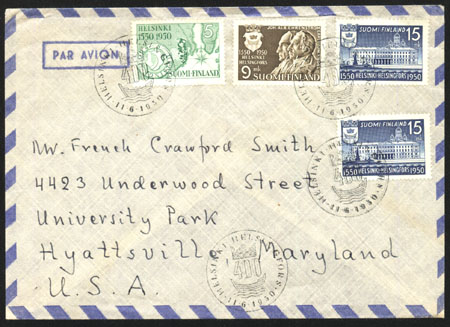 PAR AVION
HELSINKI
1550 1950
5
SUOMI-FINLAND
1550-1950
HELSINKI
HELSINGFORS
9
SUOMI-FINLAND
SUOMI FINLAND 15
1550 HELSINKI-HELSINGFORS 1950
SUOMI FINLAND 15
1550 HELSINKI-HELSINGFORS 1950
Mr. French Crawford Smith
4423 Underwood Street
University Park
Hyattsville, Maryland
U.S.A.
HELSINKI HELSINGFORS
400
11-6-1950